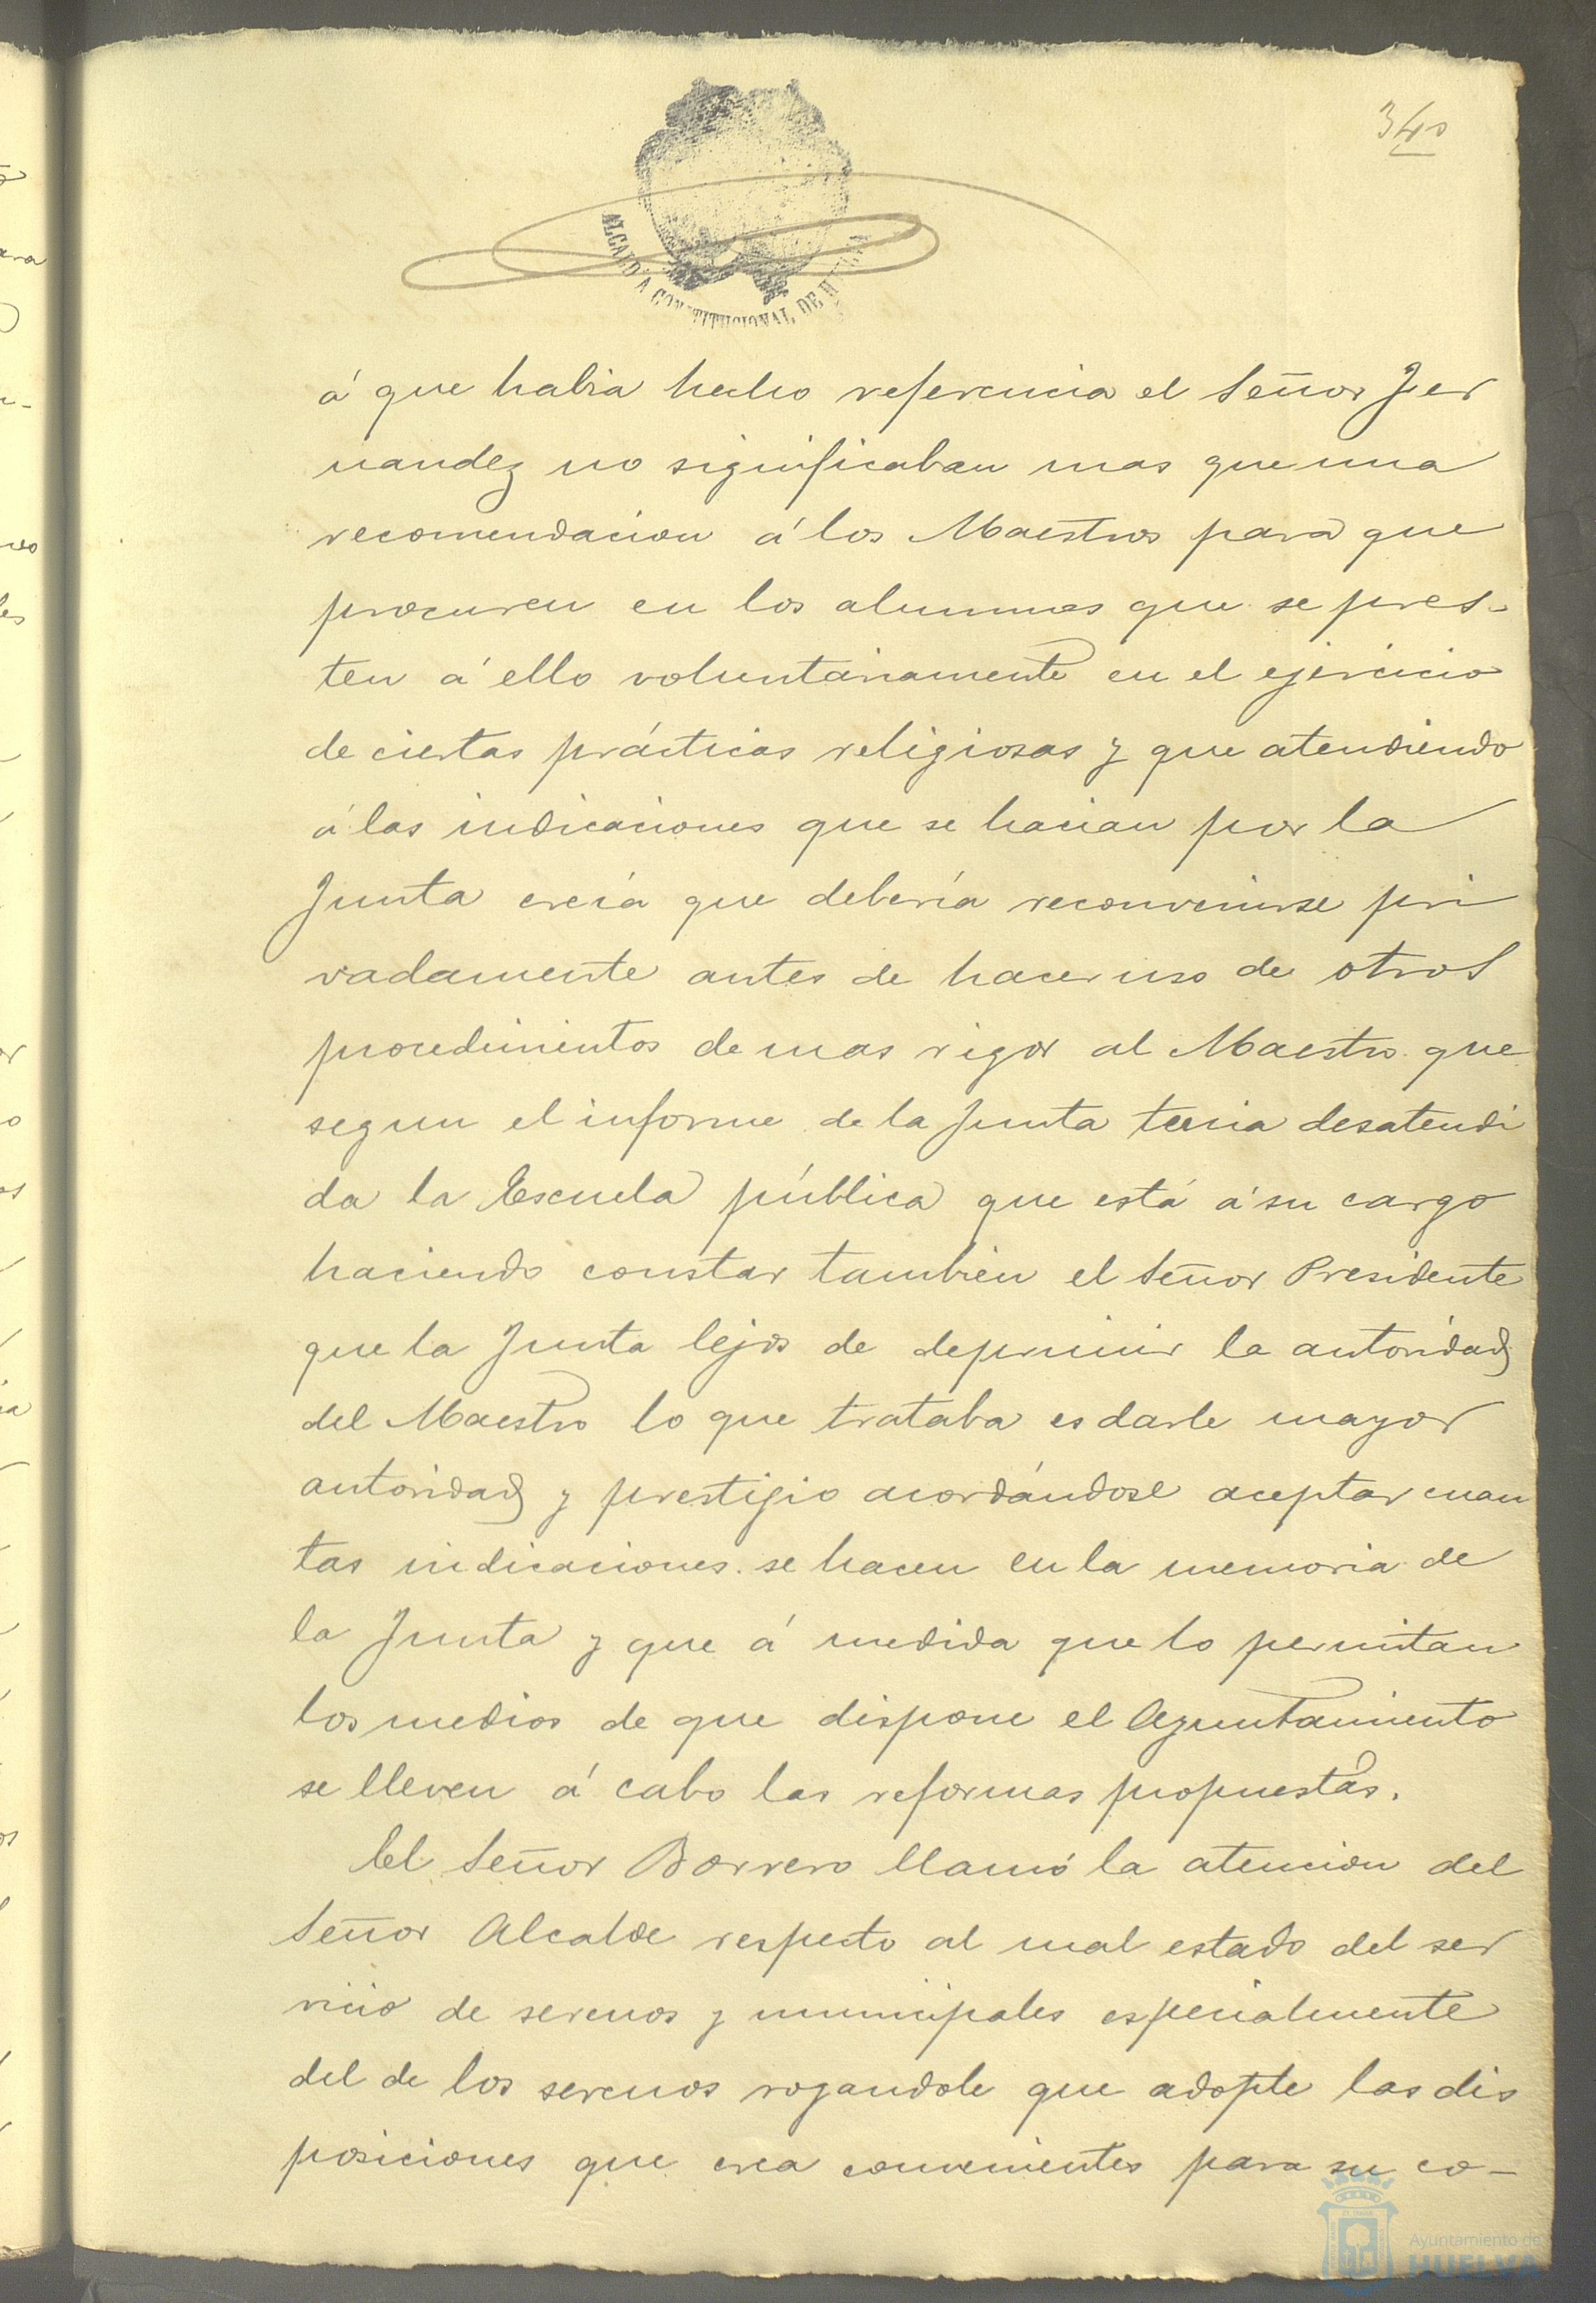 340
ALCALDÍA CONSTITUCIONAL DE HUELVA
á que habia hecho referencia el Señor Fer
nandez no significaban mas que una
recomendacion á los Maestros para que
procuren en los alumnos que se pres-
ten á ello voluntariamente en el ejercicio
de ciertas prácticas religiosas y que atendiendo
á las indicaciones que se hacian por la
Junta creía que debería reconvenirse pri
vadamente antes de hacer uso de otros
procedimientos de mas rigor al Maestro que
segun el informe de la Junta tenia desatendi
da la Escuela pública que está á su cargo
haciendo constar tambien el Señor Presidente
que la Junta lejos de deprimir la autoridad
del Maestro lo que trataba es darle mayor
autoridad y prestigio acordándose aceptar cuan
tas indicaciones se hacen en la memoria de
la Junta y que á medida que lo permitan
los medios de que dispone el Ayuntamiento
se lleven á cabo las reformas propuestas.
El Señor Borrero llamó la atencion del
Señor Alcalde respecto al mal estado del ser
vicio de serenos y municipales especialmente
del de los serenos rogandole que adopte las dis
posiciones que crea convenientes para su co-
Ayuntamiento de
HUELVA